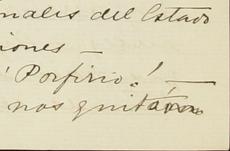 nales del Estado
iones —
¡Porfirio! —
nos quitaron